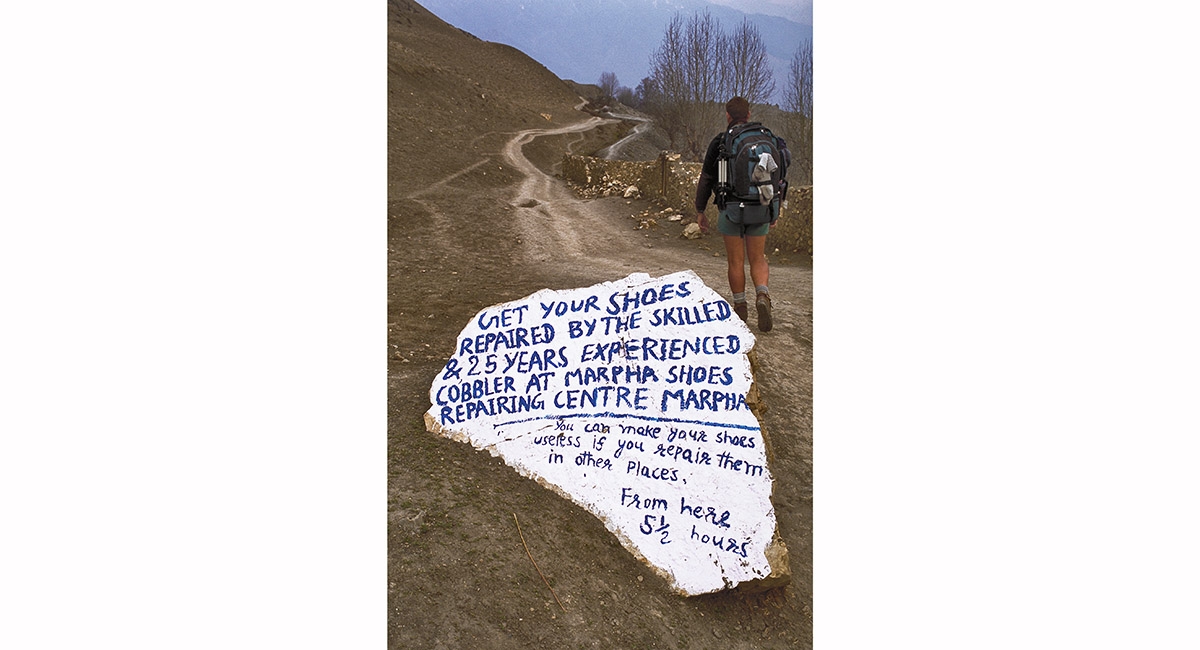 GET YOUR SHOES
REPAIRED BY THE SKILLED
& 25 YEARS EXPERIENCED
COBBLER AT MARPHA SHOES
REPAIRING CENTRE MARPHA
You can make your shoes
useless if you repair them
in other places.
From here
5½ hours